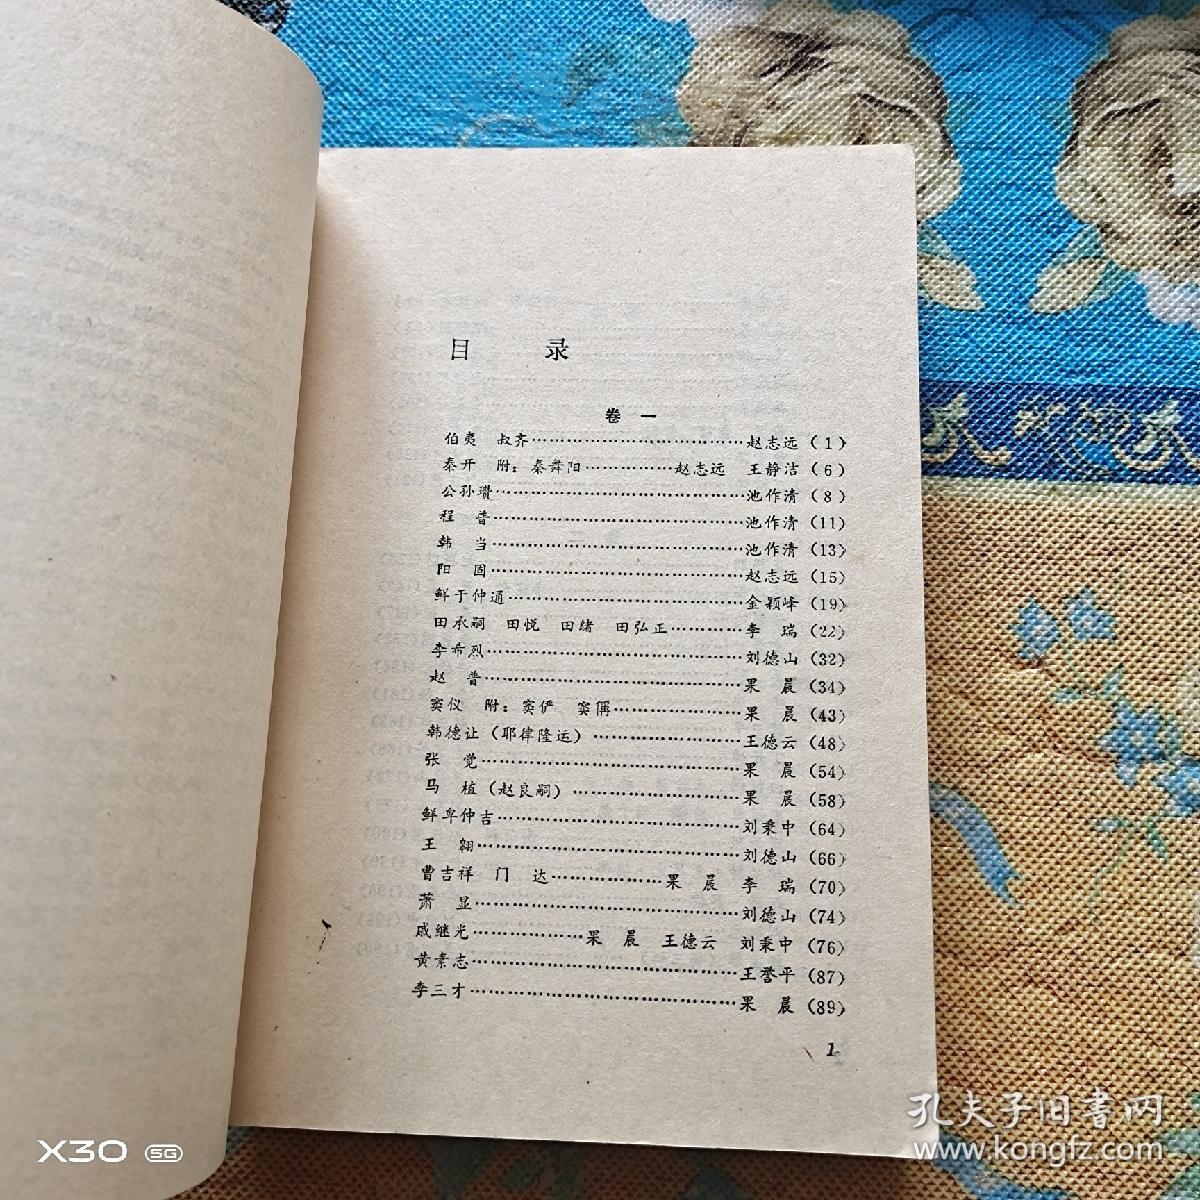 目 录
卷 一
伯夷 叔齐……………………………赵志远(1)
秦开 附：秦舞阳……………赵志远 王静洁(6)
公孙瓒……………………………池作清(8)
程 普……………………………池作清(11)
韩 当……………………………池作清(13)
阳 固……………………………赵志远(15)
鲜于仲通……………………………金颖峰(19)
田承嗣 田悦 田绪 田弘正…………李 瑞(22)
李希烈……………………………刘德山(32)
赵 普……………………………果 晨(34)
窦仪 附：窦俨 窦偁……………果 晨(43)
韩德让（耶律隆运）……………王德云(48)
张 觉……………………………果 晨(54)
马 植（赵良嗣）……………果 晨(58)
鲜卑仲吉……………………………刘秉中(64)
王 翱……………………………刘德山(66)
曹吉祥 门 达………………果 晨 李 瑞(70)
萧 显……………………………刘德山(74)
戚继光………………果 晨 王德云 刘秉中(76)
黄素志……………………………王誉平(87)
李三才……………………………果 晨(89)
1
孔夫子旧书网
www.kongfz.com
X30 5G